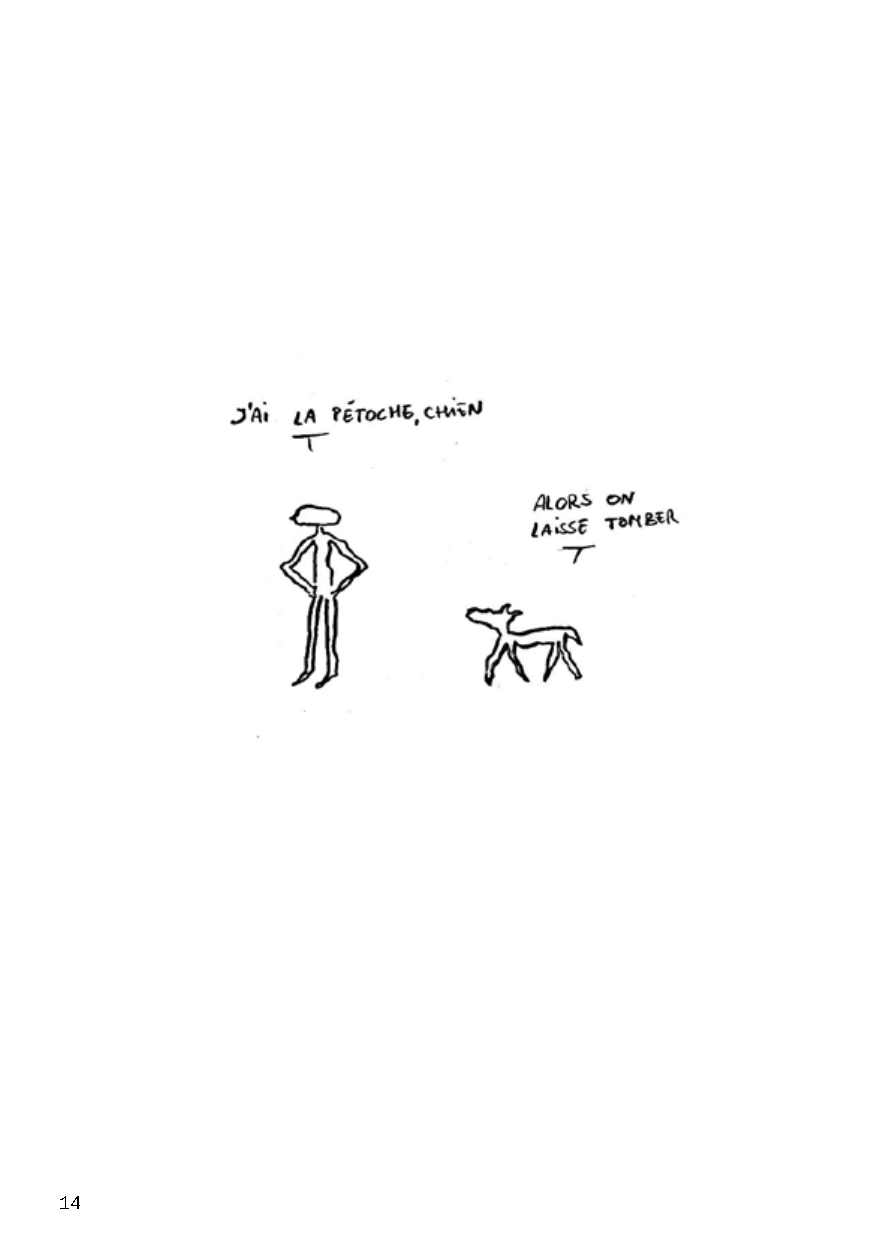 J'AI LA PÉTOCHE, CHIEN
ALORS ON
LAISSE TOMBER
14